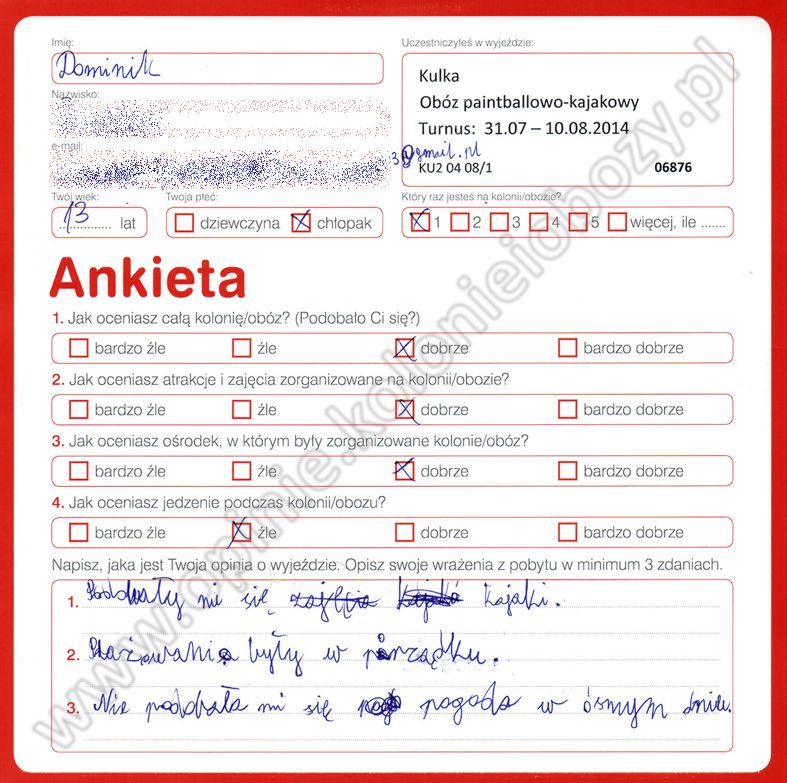 Imię:
Dominik
Nazwisko:
e-mail:
@gmail.pl
Twój wiek:
13 lat
Twoja płeć:
dziewczyna chłopak
Uczestniczyłeś w wyjeździe:
Kulka
Obóz paintballowo-kajakowy
Turnus: 31.07 – 10.08.2014
KU2 04 08/1 06876
Który raz jesteś na kolonii/obozie?
1 2 3 4 5 więcej, ile .......
Ankieta
1. Jak oceniasz całą kolonię/obóz? (Podobało Ci się?)
bardzo źle źle dobrze bardzo dobrze
2. Jak oceniasz atrakcje i zajęcia zorganizowane na kolonii/obozie?
bardzo źle źle dobrze bardzo dobrze
3. Jak oceniasz ośrodek, w którym były zorganizowane kolonie/obóz?
bardzo źle źle dobrze bardzo dobrze
4. Jak oceniasz jedzenie podczas kolonii/obozu?
bardzo źle źle dobrze bardzo dobrze
Napisz, jaka jest Twoja opinia o wyjeździe. Opisz swoje wrażenia z pobytu w minimum 3 zdaniach.
1. mi się kajaki.
2. były w porządku.
3. Nie mi się pogoda w ósmym dniu.
www.opinie.kolonieiobozy.pl